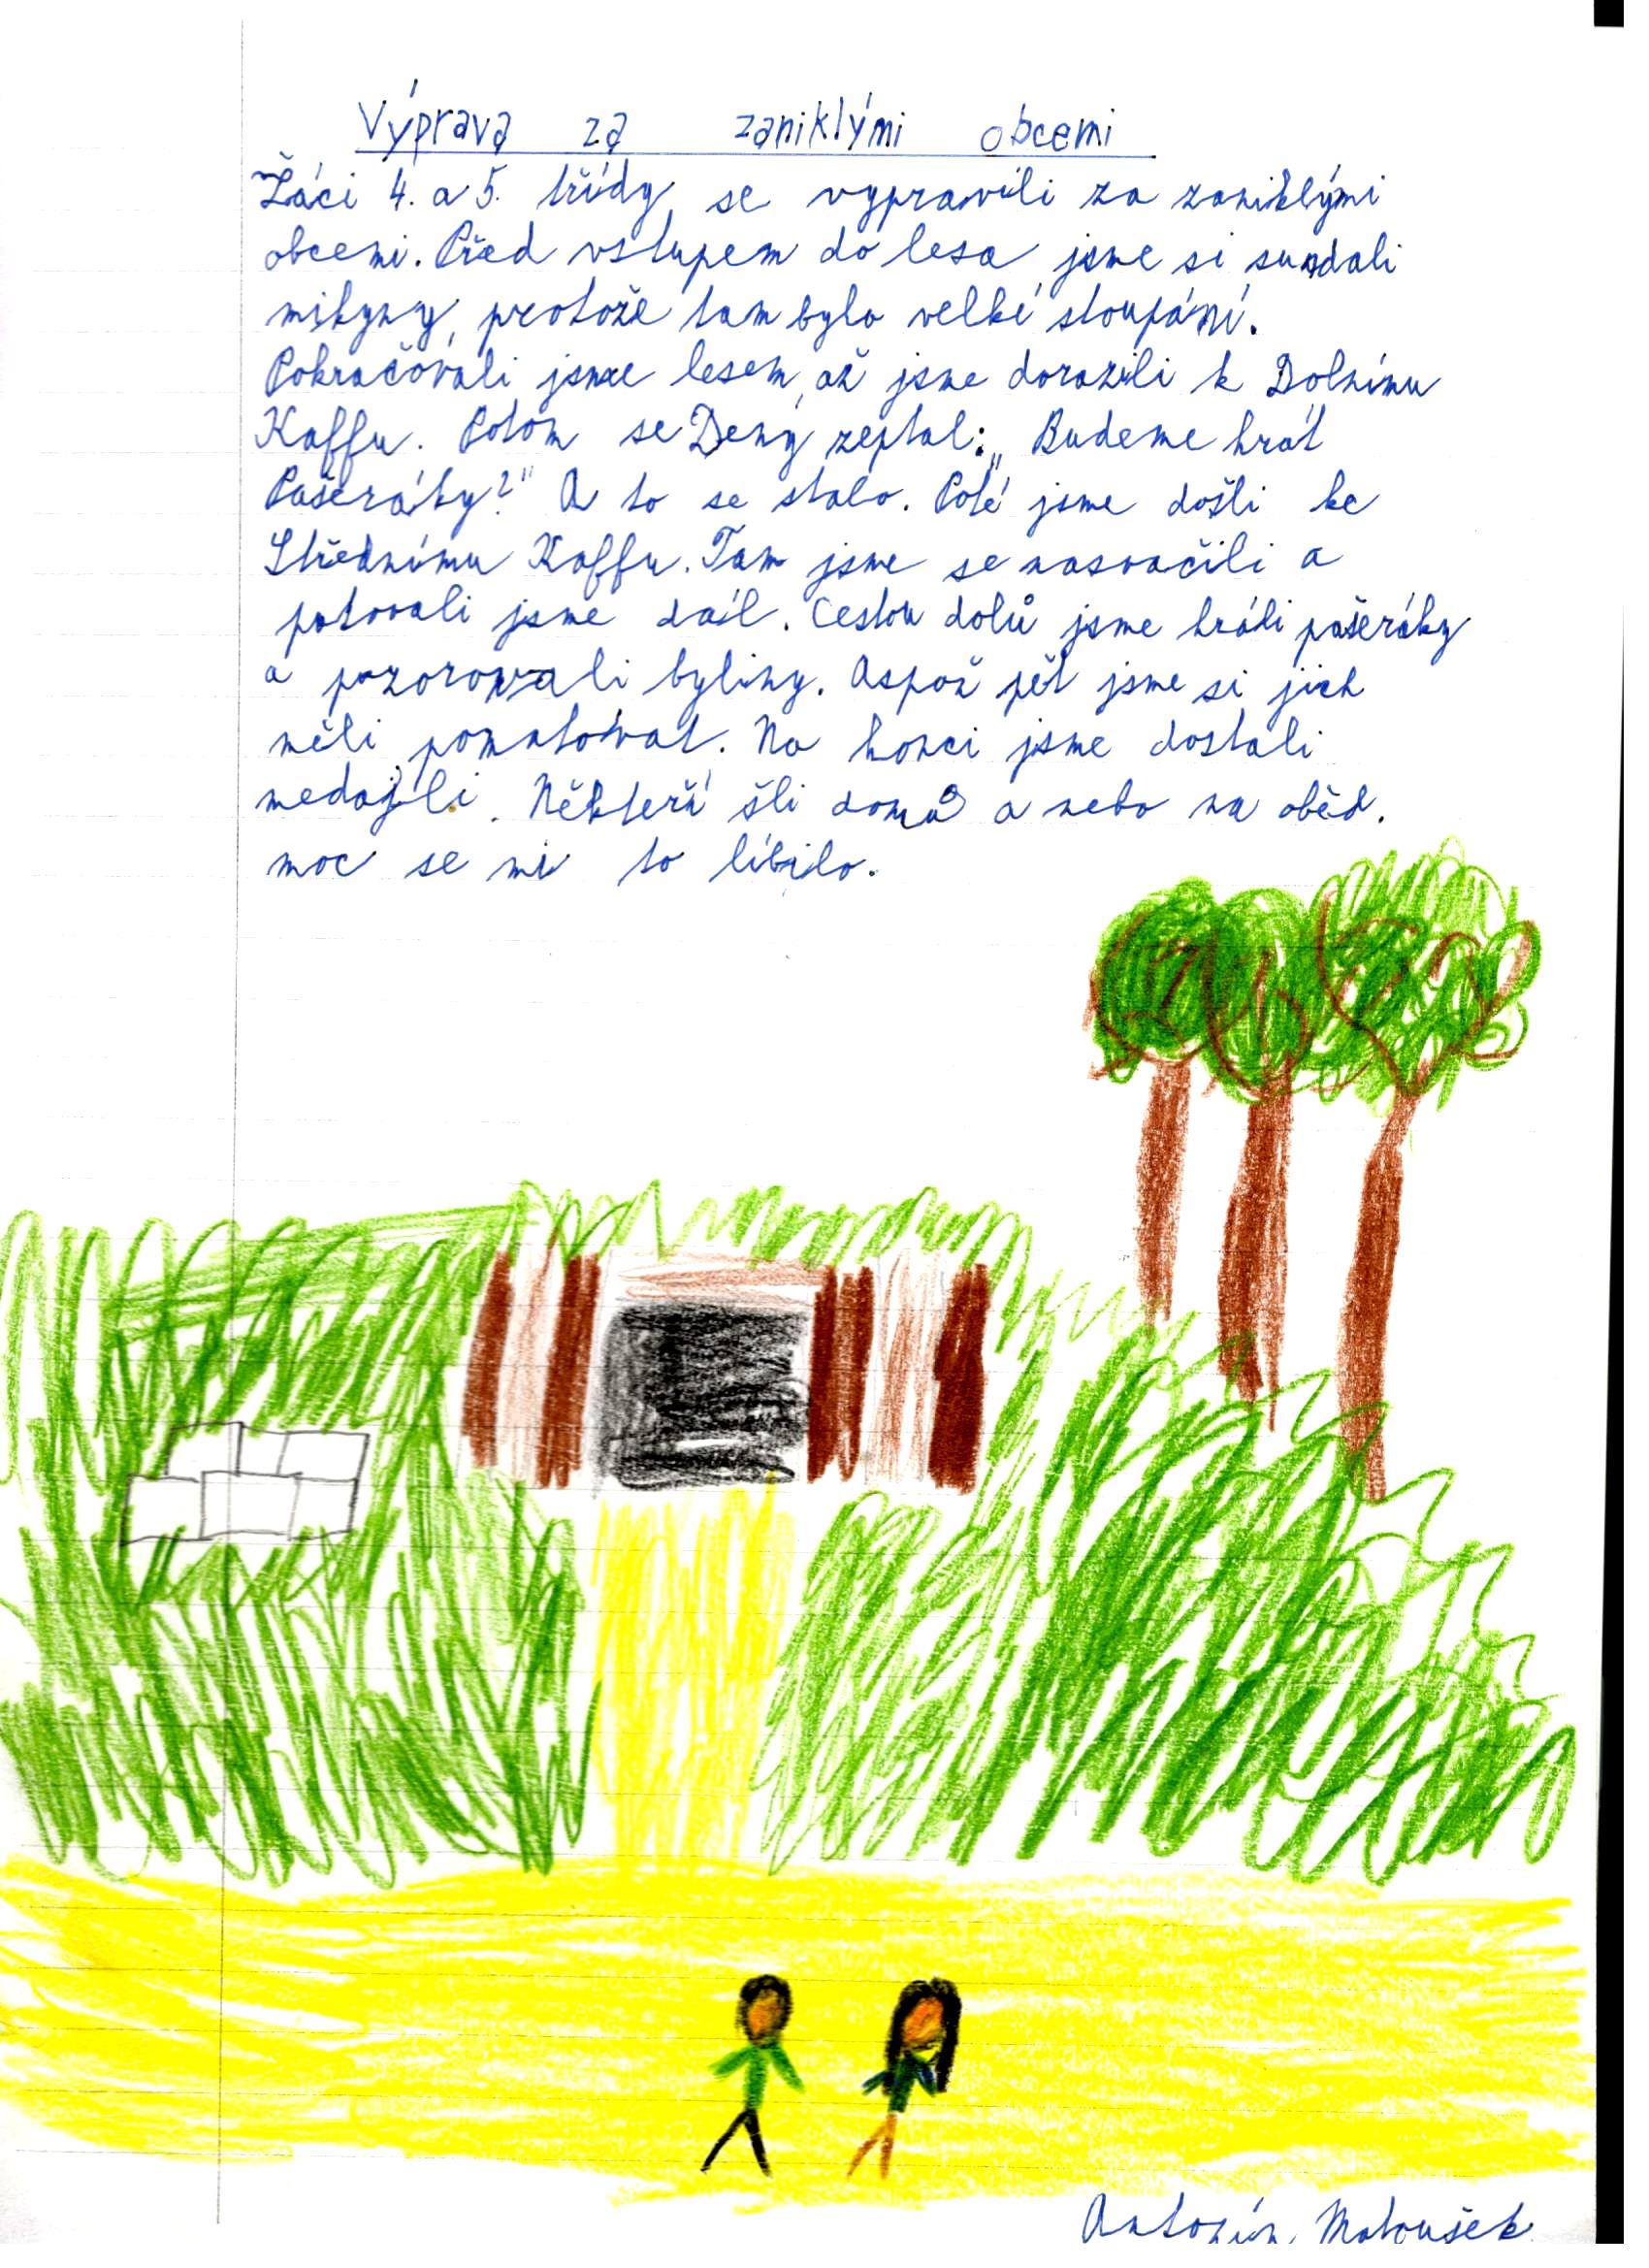 Výprava za zaniklými obcemi
Žáci 4. a 5. třídy se vypravili za zaniklými
obcemi. Před vstupem do lesa jsme si sundali
mikyny, protože tam bylo velké stoupání.
Pokračovali jsme lesem, až jsme dorazili k Dolnímu
Kaffu. Potom se Deny zeptal: „Budeme hrát
Pašeráky?" A to se stalo. Poté jsme došli ke
Střednímu Kaffu. Tam jsme se nasvačili a
putovali jsme dál. Cestou dolů jsme hráli pašeráky
a pozorovali byliny. Aspoň pět jsme si jich
měli pamatovat. Na konci jsme dostali
medajli. Někteří šli domů a nebo na oběd.
moc se mi to líbilo.
Antonín Matoušek